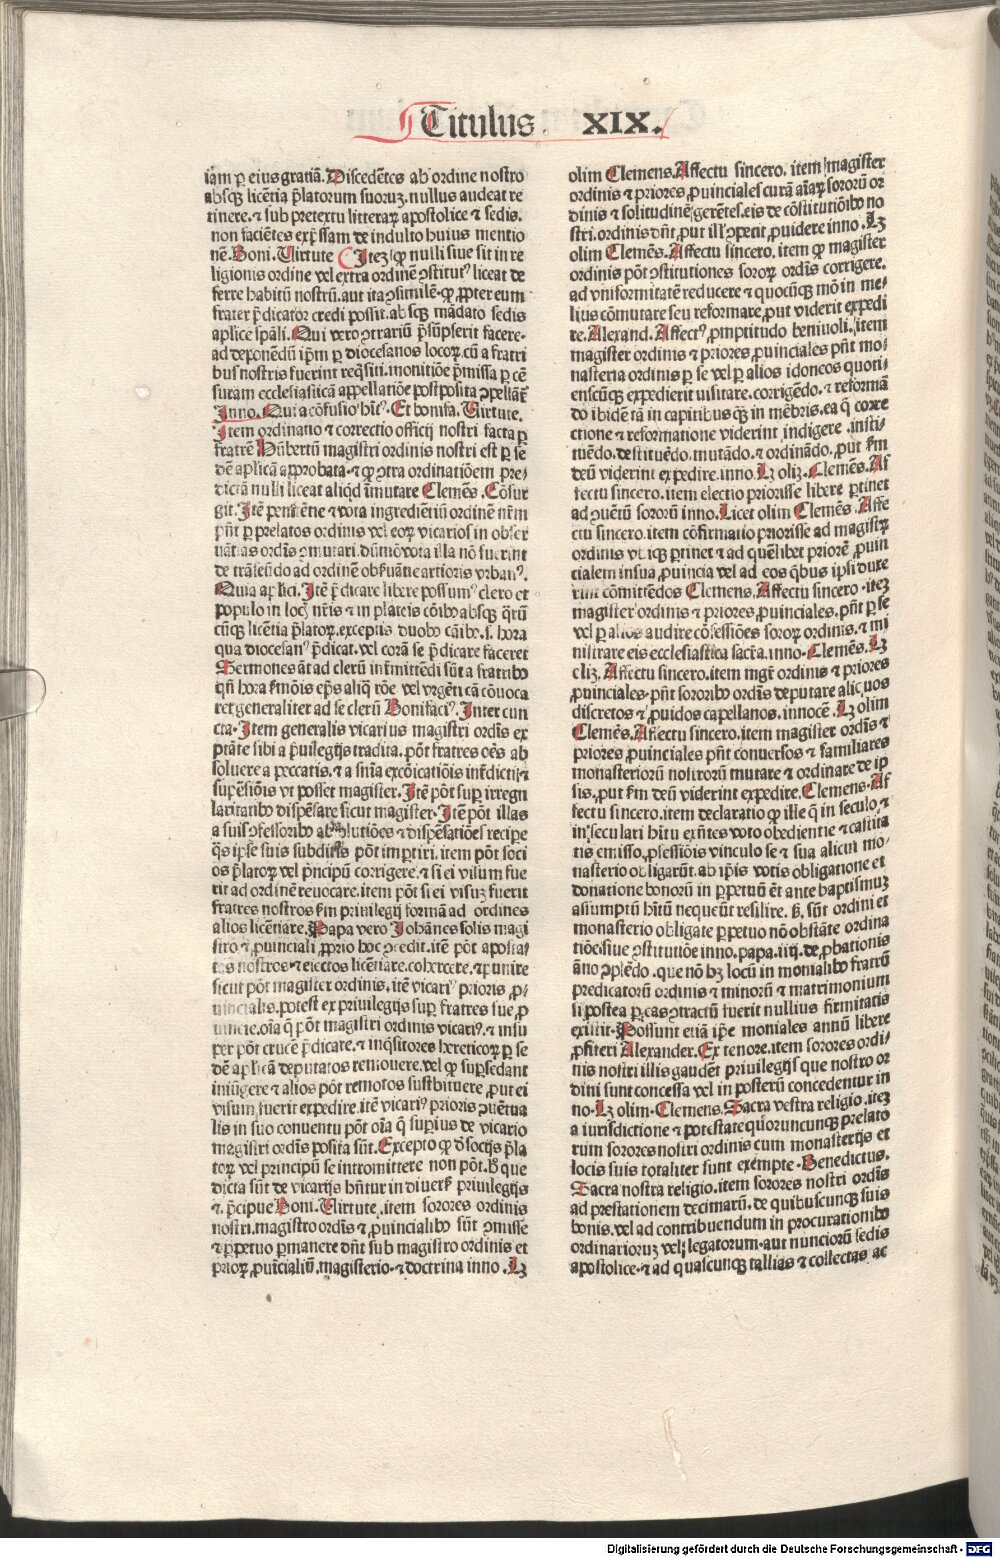 Titulus XIX.
iam ꝑ eius gratiã. Discedẽtes ab ordine nostro
absqꝫ licẽtia p̃latorum suoruꝫ. nullus audeat re
tinere. ⁊ sub pretextu litterarꝝ apostolice ⁊ sedis.
non faciẽtes exp̃ssam de indulto huius mentio
nẽ. Boni. Virtute Iteꝫ qꝙ nulli siue sit in re
ligionis ordine vel extra ordinẽ ꝯstitutꝰ liceat de
ferre habitũ nostrũ. aut ita ꝯsimilẽ. qꝙ ꝓpter eum
frater p̃dicator credi possit. absqꝫ mãdato sedis
aplice sp̃ali. Qui vero ꝯtrariũ p̃sũpserit facere.
ad deponẽdũ ip̃m ꝑ diocesanos locoꝝ. cũ a fratri
bus nostris fuerint req̃siti. monitiõe p̃missa ꝑ cẽ
suram ecclesiasticã appellatiõe postposita ꝯpellãt̃
Inno. Quia cõfusio hĩtꝰ. Et bonifa. Virtute.
Item ordinatio ⁊ correctio officij nostri facta ꝑ
fratrẽ Hũbertũ magistri ordinis nostri est ꝑ se
dẽ aplicã approbata. ⁊ qꝙ ꝯtra ordinatiõem pre
dictã nulli liceat aliq̃d ĩmutare Clemẽs. Cõsur
git. Itẽ penitẽtie ⁊ vota ingrediẽtiũ ordinẽ nr̃m
pñt ꝑ prelatos ordinis vel eoꝝ vicarios in obser
uãtias ordĩs ꝯmutari. dũmõ vota illa nõ fuerint
de trãseũdo ad ordinẽ obs̃uãtie artioris vrbanꝰ.
Quia aplici. Itẽ p̃dicare libere possumꝰ clero et
populo in locꝭ nr̃is ⁊ in plateis cõibꝰ absqꝫ q̃rũ
cũqꝫ licẽtia p̃latoꝝ. exceptis duobꝰ cãibꝰ. s. hora
qua diocesanꝰ p̃dicat. vel corã se p̃dicare faceret
Sermones ãt ad clerũ ĩtermittẽdi sũt a fratribꝰ
qñ hora s̃mõis ep̃s aliq̃ rõe vel vrgẽti cã cõuoca
ret generaliter ad se clerũ Bonifaciꝰ. Inter cun
cta. Item generalis vicarius magistri ordĩs ex
ptãte sibi a p̃uilegijs tradita. põt fratres oẽs ab
soluere a peccatis. ⁊ a sñia excõicatiõis int̃dictĩ ⁊
suspẽsiõis vt posset magister. Itẽ põt suꝑ irregu
laritatibꝰ dispẽsare sicut magister. Itẽ põt illas
a suis ꝯfessoribꝰ absolutiões ⁊ dispẽsatiões recipe
q̃s ip̃se suis subditis põt imꝑtiri. item põt soci
os p̃latoꝝ vel p̃ncipũ corrigere. ⁊ si ei visum fue
rit ad ordinẽ reuocare. item põt si ei visuꝫ fuerit
fratres nostros s̃m privilegij formã ad ordines
alios licẽtiare. Papa vero Iohãnes solis magi
stro ⁊ ꝓuinciali ꝓprio hoc ꝯcedit. itẽ põt aposta
tas nostros ⁊ eiectos licẽtiare. cohercere. ⁊ punire
sicut põt magister ordinis. itẽ vicariꝰ prioris ꝓ
uincialis. potest ex priuilegijs suꝑ fratres sue ꝓ
uincie. oĩa q̃ põt magistri ordinis vicariꝰ. ⁊ insu
per põt crucẽ p̃dicare. ⁊ inq̃sitores hereticoꝝ ꝑ se
dẽ aplicã deputatos remouere. vel qꝙ suꝑsedant
iniũgere ⁊ alios põt remotos sustbituere ꝓut ei
visum fuerit expedire. itẽ vicariꝰ prioris ꝯuẽtua
lis in suo conuentu põt oĩa q̃ suꝑius de vicario
magistri ordĩs posita sũt. Excepto qꝙ d̃ socijs p̃la
toꝝ vel principũ se intromittere non põt. Hec que
dicta sũt de vicarijs hñtur in diuersꝭ privilegijs
⁊ p̃cipue Boni. Virtute. item sorores ordinis
nostri. magistro ordĩs ⁊ ꝓuincialibꝰ sũt ꝯmisse
⁊ ꝑpetuo ꝑmanere dñt sub magistro ordinis et
prioꝝ ꝓuĩcialiũ. magisterio. ⁊ doctrina inno. Lꝫ
olim Clemens. Affectu sincero. item magister
ordinis ⁊ priores ꝓuinciales curã aĩaꝝ sororũ or
dinis ⁊ solitudinẽ gerẽtes. eis de cõstitutiõibꝰ no
stri. ordinis dñt. put illꝭ ꝯpetit ꝓuidere inno. Lꝫ
olim Clemẽs. Affectu sincero. item qꝙ magister
ordinis põt ꝯstitutiones soroꝝ ordĩs corrigere.
ad vniformitatẽ reducere ⁊ quocũqꝫ mõ in me
lius cõmutare seu reformare ꝓut viderit expedi
re. Alexand. Affectꝰ. ꝓmptitudo beniuoli. item
magister ordinis ⁊ priores ꝓuinciales pñt mo
nasteria ordinis ꝑ se vel ꝑ alios idoneos quoti
enscũqꝫ expedierit visitare. corrigẽdo. ⁊ reformã
do ibidẽ tã in capitibus q̃ꝫ in mẽbris. ea q̃ corre
ctione ⁊ reformatione viderint indigere. insti
tuẽdo. destituẽdo. mutãdo. ⁊ ordinãdo. ꝓut s̃m
deũ viderint expedire. inno. Lꝫ oliꝫ. Clemẽs. Af
fectu sincero. item electio priorisse libere ꝑtinet
ad ꝯuẽtũ sororũ inno. Licet olim Clemẽs. Affe
ctu sincero. item cõfirmatio priorisse ad magistꝝ
ordinis vticꝫ ꝑtinet ⁊ ad quẽlibet priorẽ ꝓuin
cialem in sua ꝓuincia vel ad eos q̃bus ipsi duxe
rint cõmittẽdos Clemens. Affectu sincero. iteꝫ
magister ordinis ⁊ priores ꝓuinciales. pñt ꝑ se
vel ꝑ alios audire cõfessiões soroꝝ ordinis. ⁊ mi
nistrare eis ecclesiastica sacr̃a. inno. Clemẽs. Lꝫ
oliꝫ. Affectu sincero. item mgr̃ ordinis ⁊ priores
ꝓuinciales. pñt sororibꝰ ordĩs deputare aliquos
discretos ⁊ ꝓuidos capellanos. innocẽ. Lꝫ olim
Clemẽs. Affectu sincero. item magister ordĩs ⁊
priores ꝓuinciales pñt conuersos ⁊ familiares
monasteriorũ nostrorũ mutare ⁊ ordinare de ip
sis. ꝓut s̃m deũ viderint expedire. Clemens. Af
fectu sincero. item declaratio qꝙ ille q̃ in seculo ⁊
in seculari hĩtu exñtes voto obedientie ⁊ castita
tis emisso. ꝓfessiõis vinculo se ⁊ sua alicui mo
nasterio obligarũt. ab ip̃is votis obligatione et
donatione bonorũ in ꝑpetuũ et̃ ante baptismuꝫ
assumptũ hĩtũ nequeũt resilire. sꝫ sũt ordini et
monasterio obligate ꝑpetuo nõ obstãte ordina
tiõe siue ꝯstitutiõe inno. papa. iiij. de ꝓbationis
ãno ꝯplẽdo. que nõ hꝫ locũ in monialibꝰ fratrũ
predicatorũ ordinis ⁊ minorũ ⁊ matrimonium
si postea ꝑ eas ꝯtractũ fuerit nullius firmitatis
existit. Possunt etiã ip̃e moniales annũ libere
ꝓfiteri Alexander. Ex tenore. item sorores ordi
nis nostri illis gaudẽt priuilegijs que nostro or
dini sunt concessa vel in posterũ concedentur in
no. Lꝫ olim. Clemens. Sacra vestra religio. iteꝫ
a iurisdictione ⁊ potestate quoruncunqꝫ prelato
rum sorores nostri ordinis cum monasterijs et
locis suis totaliter sunt exempte. Benedictus.
Sacra nostra religio. item sorores nostri ordĩs
ad prestationem decimarũ. de quibuscunqꝫ suis
bonis. vel ad contribuendum in procurationibꝰ
ordinarioruꝫ vel legatorum. aut nunciorũ sedis
apostolice. ⁊ ad quascunqꝫ tallias ⁊ collectas ac
Digitalisierung gefördert durch die Deutsche Forschungsgemeinschaft - DFG